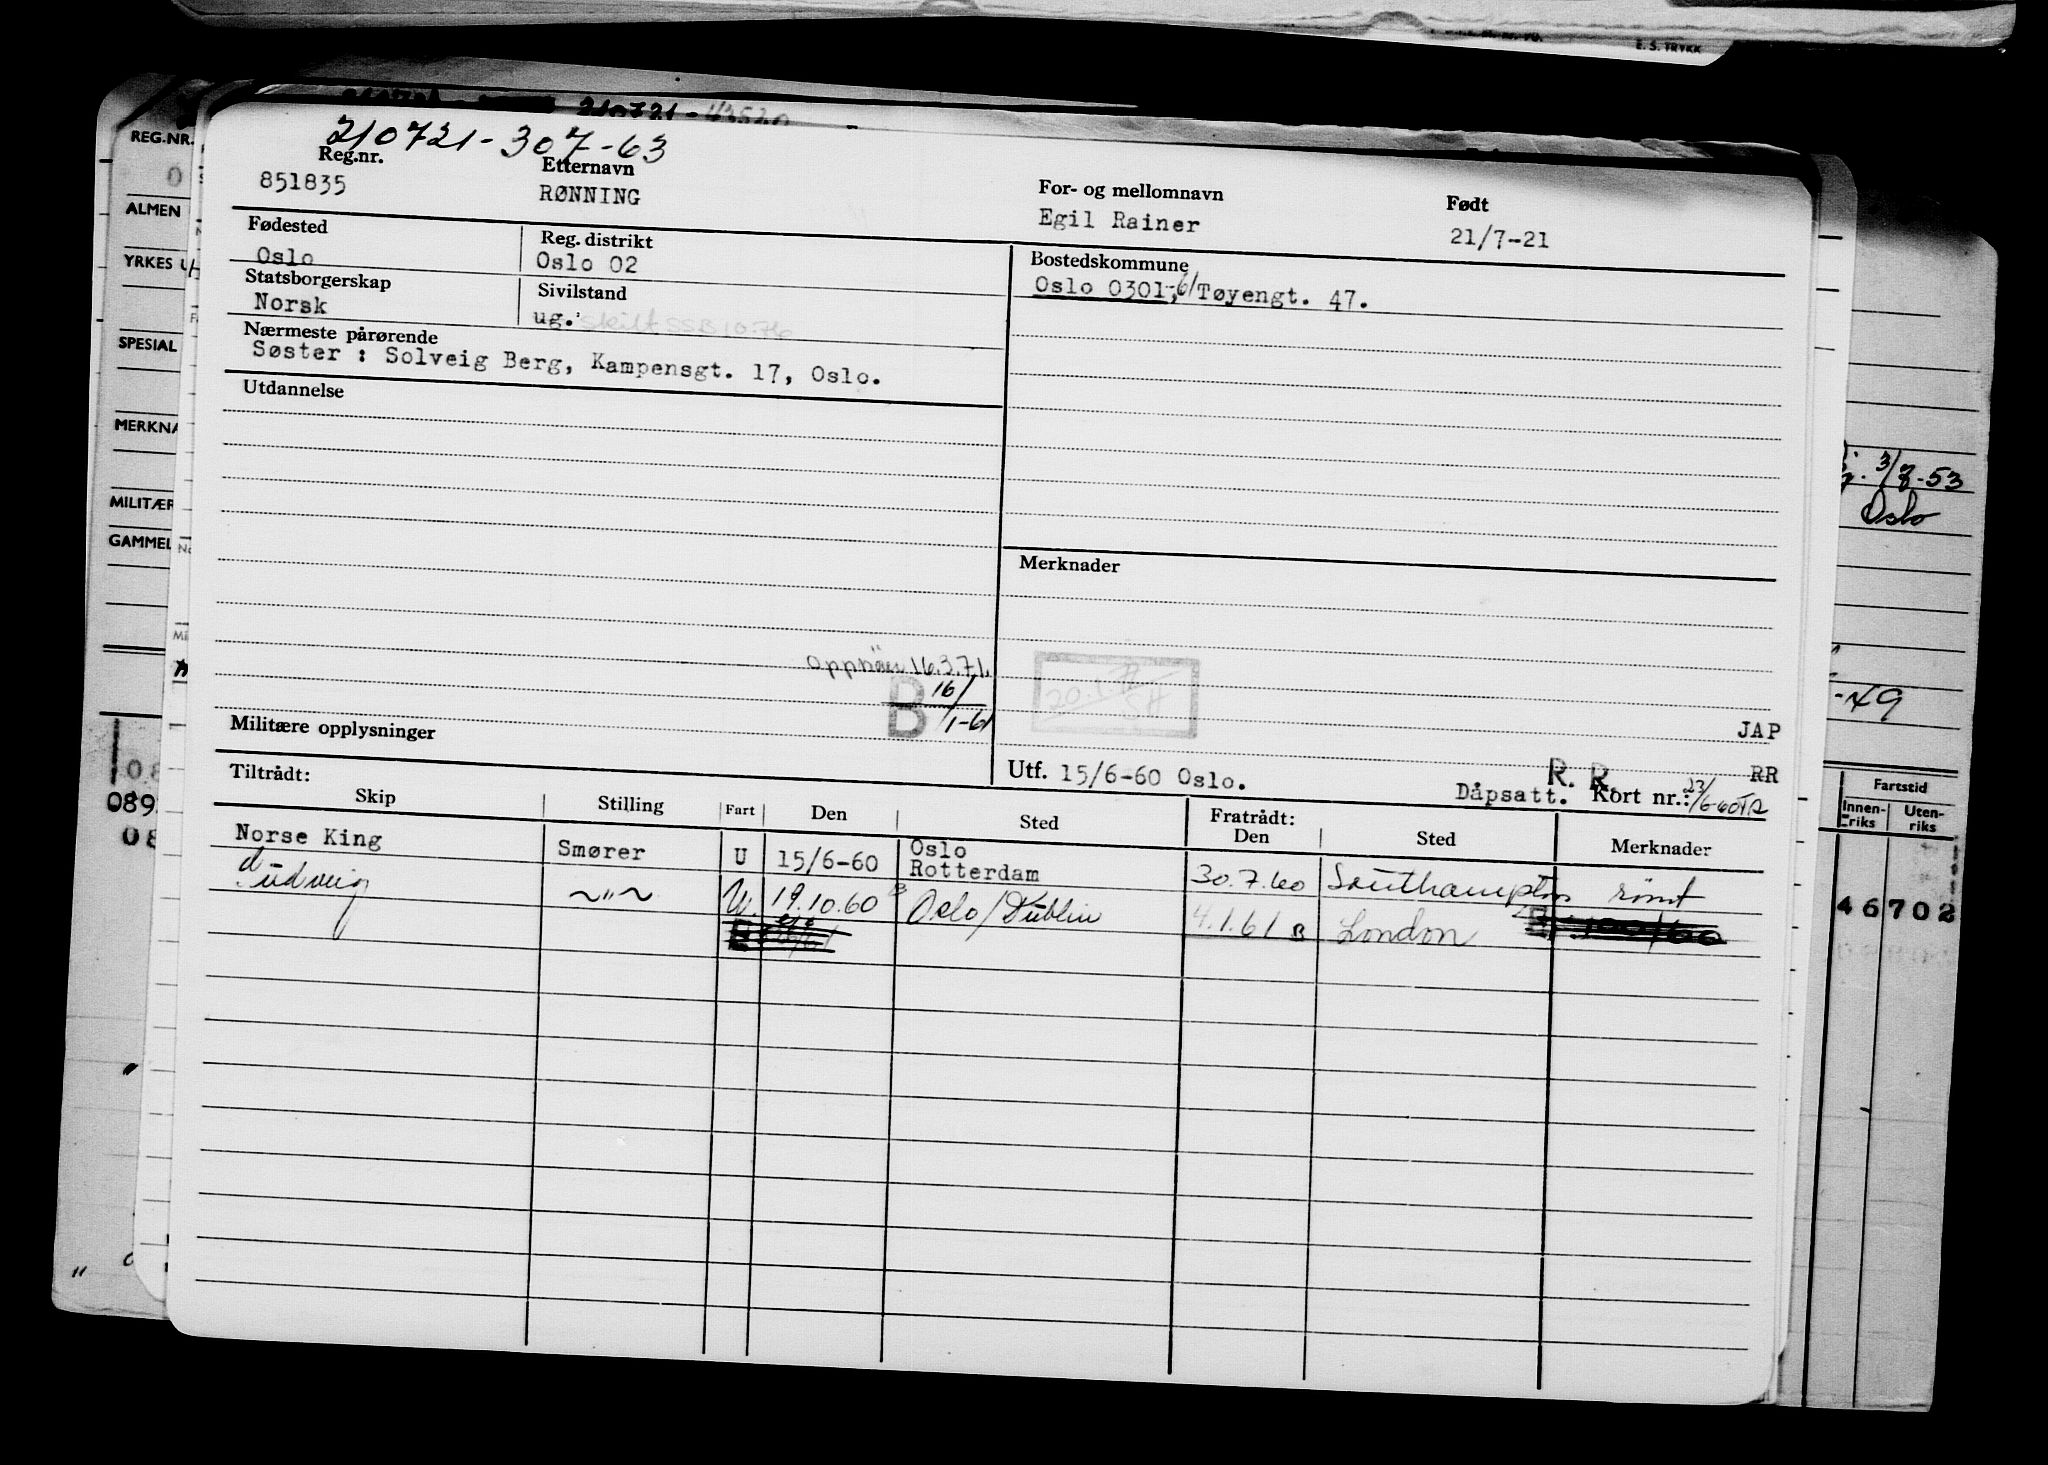 E. S. TRYKK
210721-43520
210721-307-63
REG.NR.
Reg.nr. Etternavn For- og mellomnavn Født
851835 RØNNING Egil Rainer 21/7-21
ALMEN
Fødested Reg. distrikt Bostedskommune
Oslo Oslo 02 Oslo 0301, -61 Tøyengt. 47.
YRKES
Statsborgerskap Sivilstand
Norsk ug. skilt SSB 10.76
Nærmeste pårørende
Søster : Solveig Berg, Kampensgt. 17, Oslo.
SPESIAL
Utdannelse
MERKNA
3/8-53
Oslo
MILITÆR
GAMMEL
Merknader
16.3.71.
B 16/1-61
-49
Militære opplysninger
JAP
Utf. 15/6-60 Oslo. R. R. RR
Dåpsatt. Kort nr.: 23/6-60
Tiltrådt: Fratrådt:
Skip Stilling Fart Den Sted Den Sted Merknader
Fartstid
Innen-riks Uten-riks
Norse King Smører U 15/6-60 Oslo Rotterdam 30.7.60 Southampton rømt
Ludvig ~"~ U. 19.10.60 B Oslo/Dublin 4.1.61 B London
089
46702